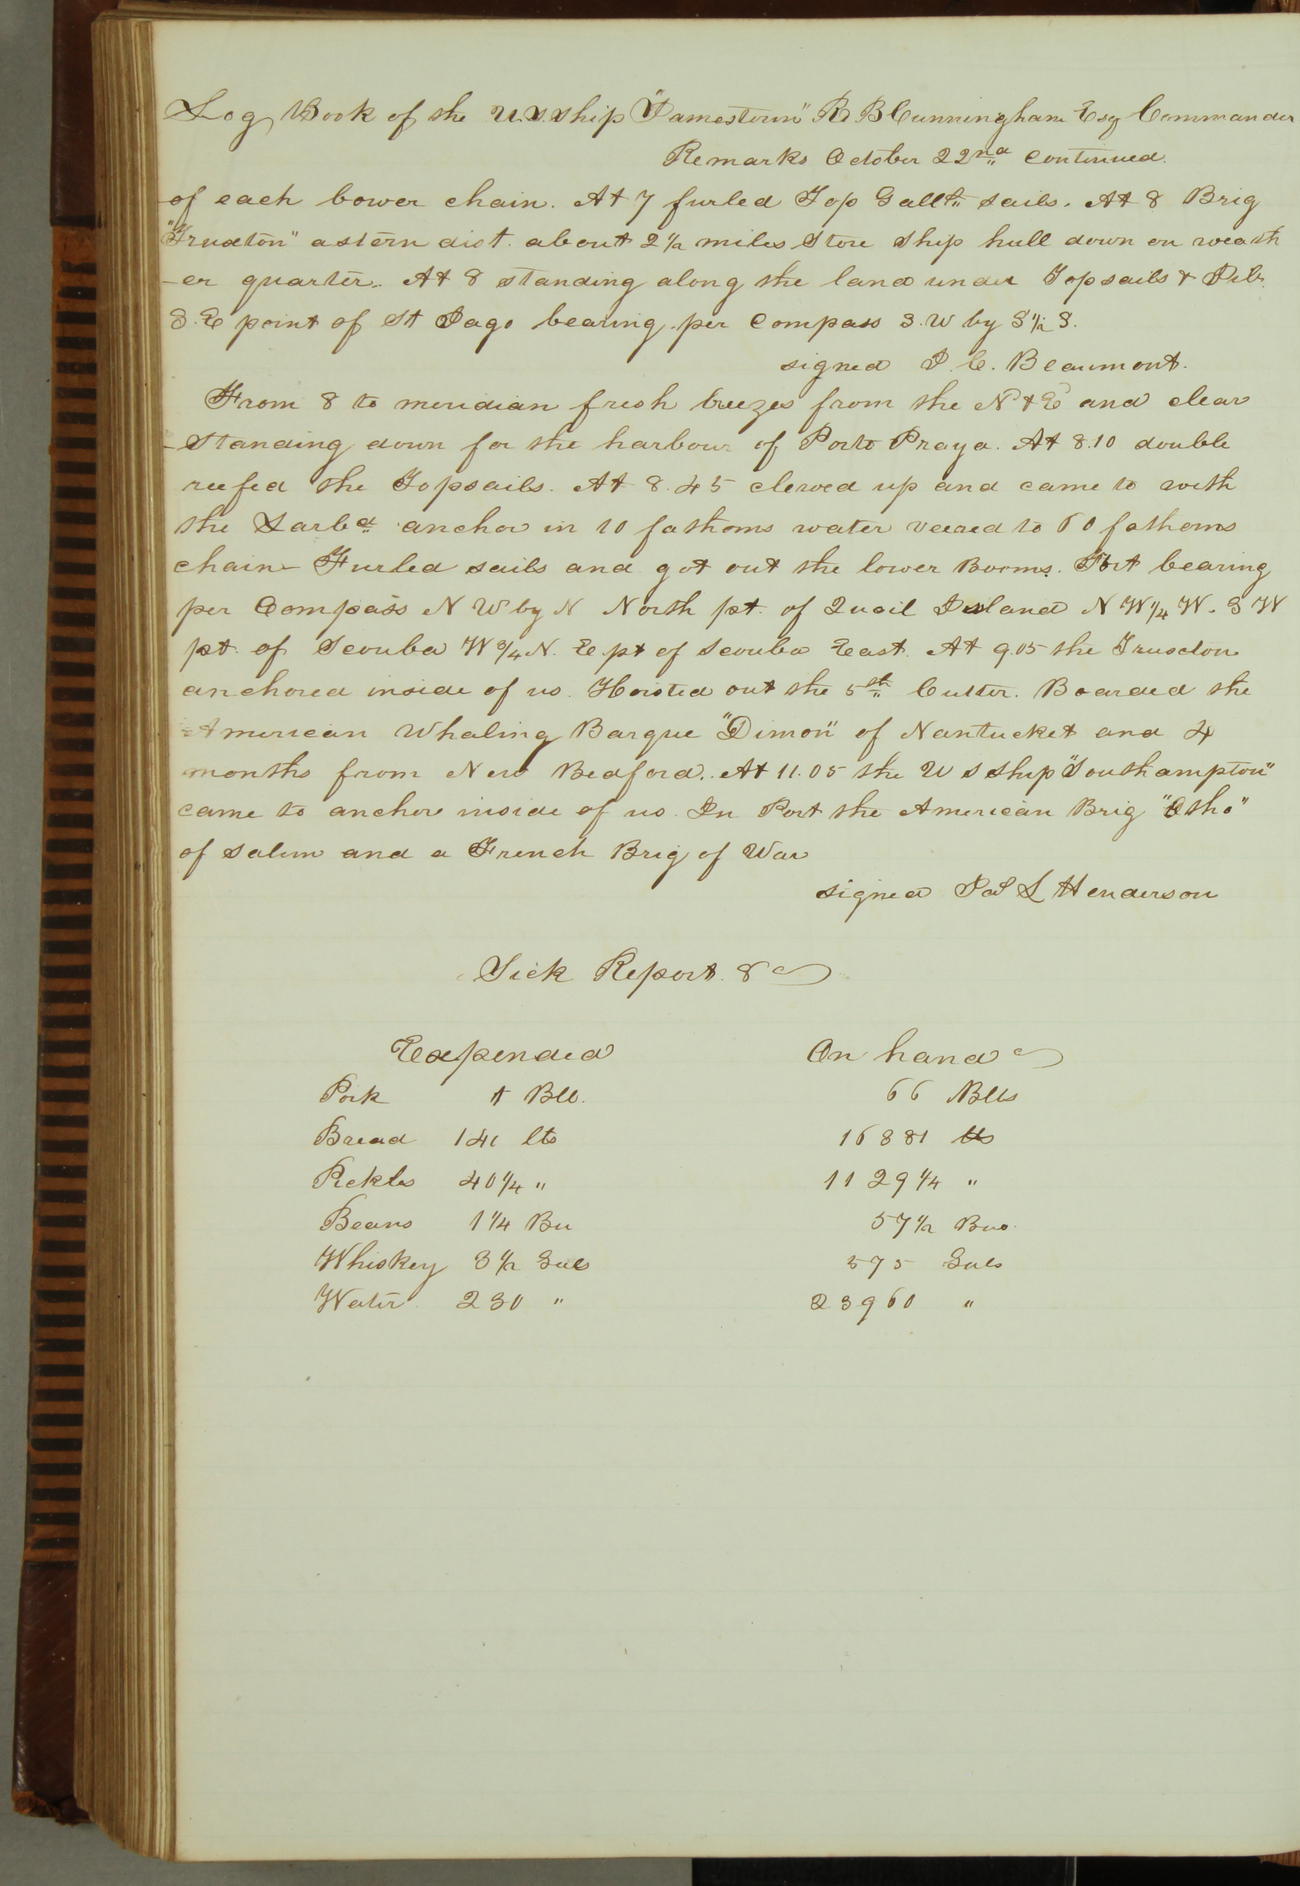 Log Book of the U.S. Ship "Jamestown" R B Cunningham Esq Commander
Remarks October 22nd continued.
of each bower chain. At 7 furled Top Gallt. sails. At 8 Brig
"Truxton" astern dist. about 2 1/2 miles Store Ship hull down on weath
-er quarter. At 8 standing along the land under Topsails & Jib.
S. E point of St Jago bearing per Compass S. W by S 1/2 S.
signed J. C. Beaumont.
From 8 to meridian fresh breezes from the N & E and clear
Standing down for the harbour of Porto Praya. At 8.10 double
reefed the Topsails. At 8.45 clewed up and came to with
the Larbd anchor in 10 fathoms water veered to 60 fathoms
chain Furled sails and got out the lower Booms. Fort bearing
per Compass N W by N North pt. of Quail Island N W 1/4 W. S W
pt. of Scouba W 3/4 N. E pt of Scouba East. At 9.05 the Truxton
anchored inside of us. Hoisted out the 5th Cutter. Boarded the
American Whaling Barque "Dimon" of Nantucket and 4
months from New Bedford. At 11.05 the U S Ship "Southampton"
came to anchor inside of us. In Port the American Brig "Otho"
of Salem and a French Brig of War
signed Jas L Henderson
Sick Report. 8
Expended On hand
Pork 1 Bll. 66 Blls
Bread 141 lbs 16881 lbs
Pickles 40 1/4 " 1129 1/4 "
Beans 1 1/4 Bu 57 1/2 Bus.
Whiskey 3 1/2 Gals 575 Gals
Water 230 " 23960 "